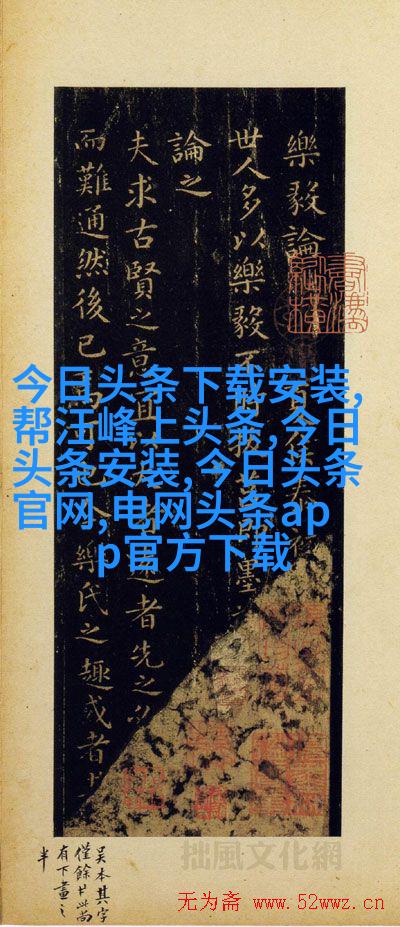 樂毅論
世人多以樂毅不
論之
夫求古賢之意宜以大者遠者先之
而難通然後已焉可也今樂氏之趣或者
今日头条下载安装,
帮汪峰上头条,今日
头条安装,今日头条
官网,电网头条ap
p官方下载
吴本其字
僅餘
有下畫之
半
拙風文化網
无为斋 www.52wwz.cn